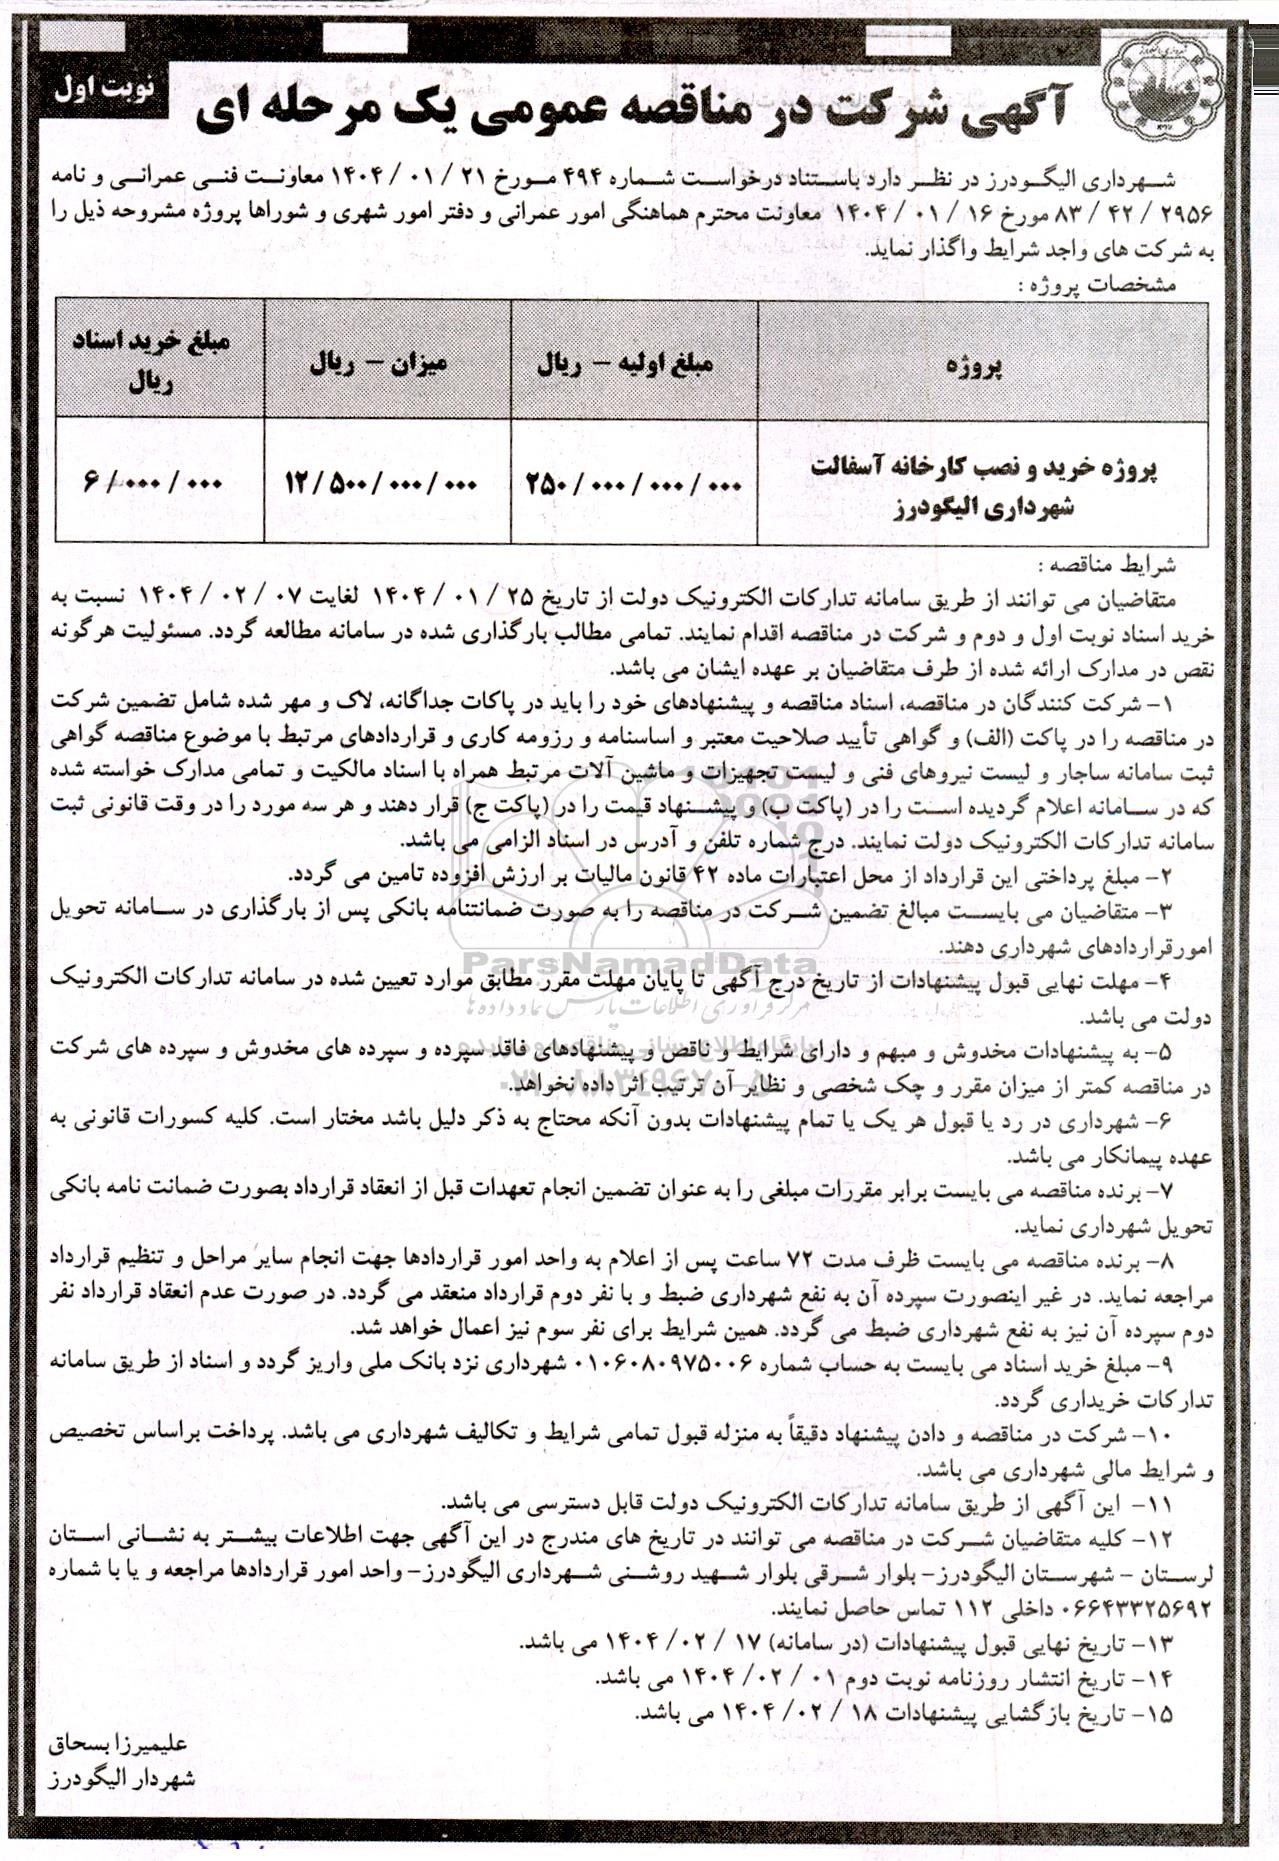 نوبت اول
آگهی شرکت در مناقصه عمومی یک مرحله ای
شهرداری الیگودرز در نظر دارد باستناد درخواست شماره ۴۹۴ مورخ ۲۱ / ۰۱ / ۱۴۰۴ معاونت فنی عمرانی و نامه
۲۹۵۶ / ۴۲ / ۸۳ مورخ ۱۶ / ۰۱ / ۱۴۰۴ معاونت محترم هماهنگی امور عمرانی و دفتر امور شهری و شوراها پروژه مشروحه ذیل را
به شرکت های واجد شرایط واگذار نماید.
مشخصات پروژه :
پروژه
مبلغ اولیه – ریال
میزان – ریال
مبلغ خرید اسناد
ریال
پروژه خرید و نصب کارخانه آسفالت
شهرداری الیگودرز
۲۵۰/۰۰۰/۰۰۰/۰۰۰
۱۲/۵۰۰/۰۰۰/۰۰۰
۶/۰۰۰/۰۰۰
شرایط مناقصه :
متقاضیان می توانند از طریق سامانه تدارکات الکترونیک دولت از تاریخ ۲۵ / ۰۱ / ۱۴۰۴ لغایت ۰۷ / ۰۲ / ۱۴۰۴ نسبت به
خرید اسناد نوبت اول و دوم و شرکت در مناقصه اقدام نمایند. تمامی مطالب بارگذاری شده در سامانه مطالعه گردد. مسئولیت هرگونه
نقص در مدارک ارائه شده از طرف متقاضیان بر عهده ایشان می باشد.
۱- شرکت کنندگان در مناقصه، اسناد مناقصه و پیشنهادهای خود را باید در پاکات جداگانه، لاک و مهر شده شامل تضمین شرکت
در مناقصه را در پاکت (الف) و گواهی تأیید صلاحیت معتبر و اساسنامه و رزومه کاری و قراردادهای مرتبط با موضوع مناقصه گواهی
ثبت سامانه ساجار و لیست نیروهای فنی و لیست تجهیزات و ماشین آلات مرتبط همراه با اسناد مالکیت و تمامی مدارک خواسته شده
که در سامانه اعلام گردیده است را در (پاکت ب) و پیشنهاد قیمت را در (پاکت ج) قرار دهند و هر سه مورد را در وقت قانونی ثبت
سامانه تدارکات الکترونیک دولت نمایند. درج شماره تلفن و آدرس در اسناد الزامی می باشد.
۲- مبلغ پرداختی این قرارداد از محل اعتبارات ماده ۴۲ قانون مالیات بر ارزش افزوده تامین می گردد.
۳- متقاضیان می بایست مبالغ تضمین شرکت در مناقصه را به صورت ضمانتنامه بانکی پس از بارگذاری در سامانه تحویل
امورقراردادهای شهرداری دهند.
ParsNamadData
۴- مهلت نهایی قبول پیشنهادات از تاریخ درج آگهی تا پایان مهلت مقرر مطابق موارد تعیین شده در سامانه تدارکات الکترونیک
دولت می باشد.
مرکز فرآوری اطلاعات پارس نماد داده ها
۵- به پیشنهادات مخدوش و مبهم و دارای شرایط و ناقص و پیشنهادهای فاقد سپرده و سپرده های مخدوش و سپرده های شرکت
در مناقصه کمتر از میزان مقرر و چک شخصی و نظایر آن ترتیب اثر داده نخواهد.
۶- شهرداری در رد یا قبول هر یک یا تمام پیشنهادات بدون آنکه محتاج به ذکر دلیل باشد مختار است. کلیه کسورات قانونی به
عهده پیمانکار می باشد.
۷- برنده مناقصه می بایست برابر مقررات مبلغی را به عنوان تضمین انجام تعهدات قبل از انعقاد قرارداد بصورت ضمانت نامه بانکی
تحویل شهرداری نماید.
۸- برنده مناقصه می بایست ظرف مدت ۷۲ ساعت پس از اعلام به واحد امور قراردادها جهت انجام سایر مراحل و تنظیم قرارداد
مراجعه نماید. در غیر اینصورت سپرده آن به نفع شهرداری ضبط و با نفر دوم قرارداد منعقد می گردد. در صورت عدم انعقاد قرارداد نفر
دوم سپرده آن نیز به نفع شهرداری ضبط می گردد. همین شرایط برای نفر سوم نیز اعمال خواهد شد.
۹- مبلغ خرید اسناد می بایست به حساب شماره ۰۱۰۶۰۸۰۹۷۵۰۰۶ شهرداری نزد بانک ملی واریز گردد و اسناد از طریق سامانه
تدارکات خریداری گردد.
۱۰- شرکت در مناقصه و دادن پیشنهاد دقیقاً به منزله قبول تمامی شرایط و تکالیف شهرداری می باشد. پرداخت براساس تخصیص
و شرایط مالی شهرداری می باشد.
۱۱- این آگهی از طریق سامانه تدارکات الکترونیک دولت قابل دسترسی می باشد.
۱۲- کلیه متقاضیان شرکت در مناقصه می توانند در تاریخ های مندرج در این آگهی جهت اطلاعات بیشتر به نشانی استان
لرستان - شهرستان الیگودرز- بلوار شرقی بلوار شهید روشنی شهرداری الیگودرز- واحد امور قراردادها مراجعه و یا با شماره
۰۶۶۴۳۳۲۵۶۹۲ داخلی ۱۱۲ تماس حاصل نمایند.
۱۳- تاریخ نهایی قبول پیشنهادات (در سامانه) ۱۷ / ۰۲/ ۱۴۰۴ می باشد.
۱۴- تاریخ انتشار روزنامه نوبت دوم ۰۱ / ۰۲/ ۱۴۰۴ می باشد.
۱۵- تاریخ بازگشایی پیشنهادات ۱۸ / ۰۲/ ۱۴۰۴ می باشد.
علیمیرزا بسحاق
شهردار الیگودرز